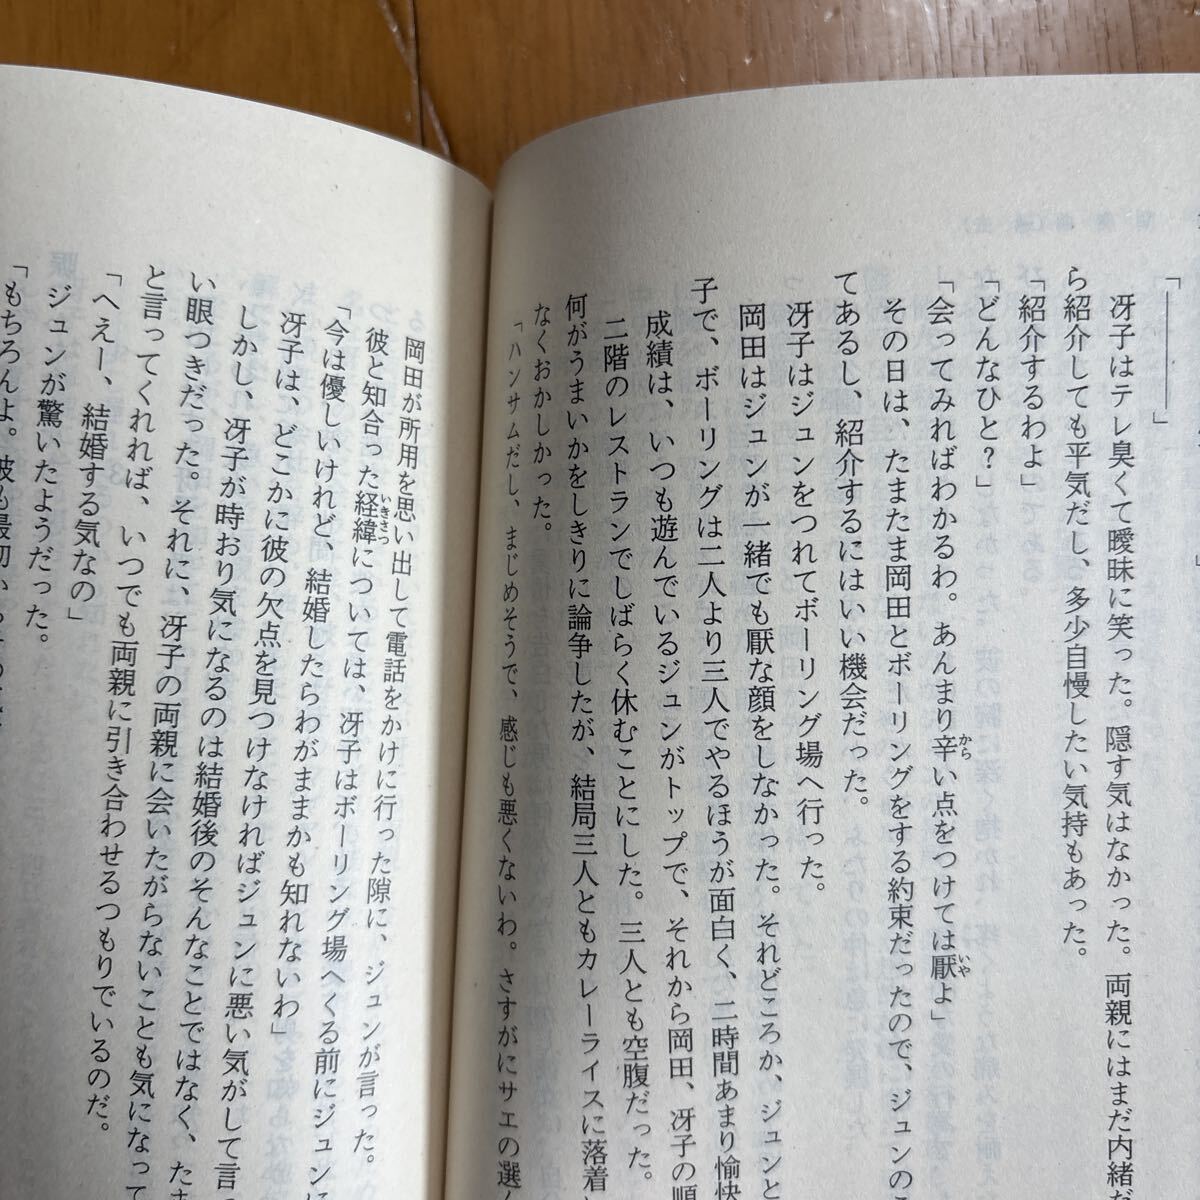 「――――」
冴子はテレ臭くて曖昧に笑った。隠す気はなかった。両親にはまだ内緒だ
ら紹介しても平気だし、多少自慢したい気持もあった。
「紹介するわよ」
「どんなひと？」
「会ってみればわかるわ。あんまり辛い点をつけては厭よ」
その日は、たまたま岡田とボーリングをする約束だったので、ジュンのこ
てあるし、紹介するにはいい機会だった。
冴子はジュンをつれてボーリング場へ行った。
岡田はジュンが一緒でも厭な顔をしなかった。それどころか、ジュンと
子で、ボーリングは二人より三人でやるほうが面白く、二時間あまり愉快
成績は、いつも遊んでいるジュンがトップで、それから岡田、冴子の順
二階のレストランでしばらく休むことにした。三人とも空腹だった。
何がうまいかをしきりに論争したが、結局三人ともカレーライスに落着
なくおかしかった。
「ハンサムだし、まじめそうで、感じも悪くないわ。さすがにサエの選
岡田が所用を思い出して電話をかけに行った隙に、ジュンが言った。
彼と知合った経緯については、冴子はボーリング場へくる前にジュン
「今は優しいけれど、結婚したらわがままかも知れないわ」
冴子は、どこかに彼の欠点を見つけなければジュンに悪い気がして言
しかし、冴子が時おり気になるのは結婚後のそんなことではなく、たま
い眼つきだった。それに、冴子の両親に会いたがらないことも気になって
と言ってくれれば、いつでも両親に引き合わせるつもりでいるのだ。
「へえー、結婚する気なの」
ジュンが驚いたようだった。
「もちろんよ。彼も最初から